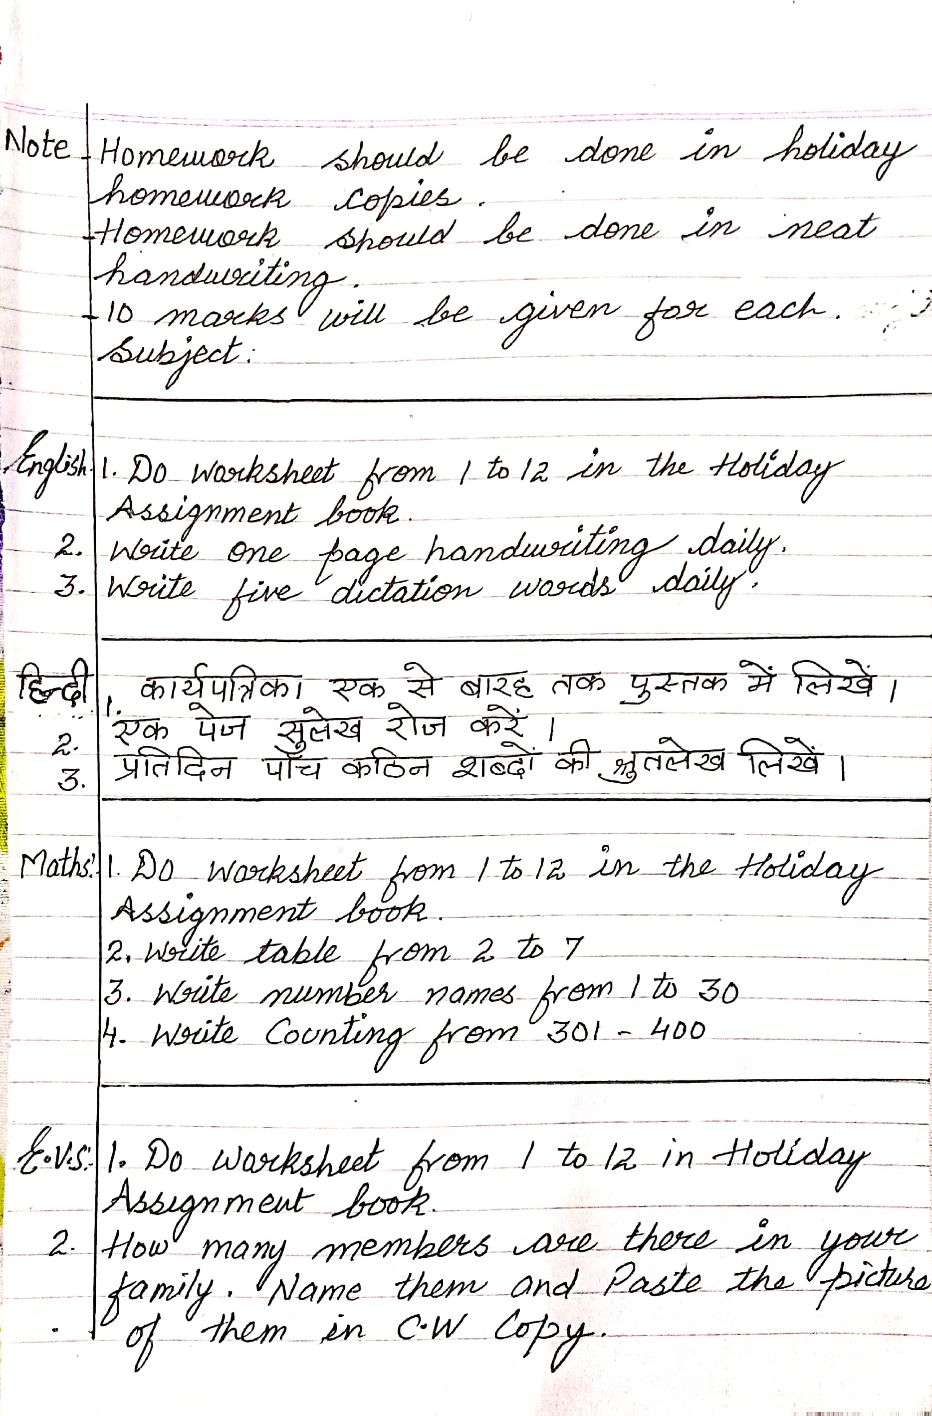 Note - Homework should be done in holiday
homework copies.
- Homework should be done in neat
handwriting.
- 10 marks will be given for each.
Subject:
English 1. Do worksheet from 1 to 12 in the Holiday
Assignment book.
2. Write one page handwriting daily.
3. Write five dictation words daily.
हिन्दी 1. कार्यपत्रिका एक से बारह तक पुस्तक में लिखें।
2. एक पेज सुलेख रोज करें।
3. प्रतिदिन पाँच कठिन शब्दों की श्रुतलेख लिखें।
Maths: 1. Do worksheet from 1 to 12 in the Holiday
Assignment book.
2. Write table from 2 to 7
3. Write number names from 1 to 30
4. Write Counting from 301 - 400
E.V.S: 1. Do worksheet from 1 to 12 in Holiday
Assignment book.
2. How many members are there in your
family. Name them and Paste the picture
of them in C.W Copy.